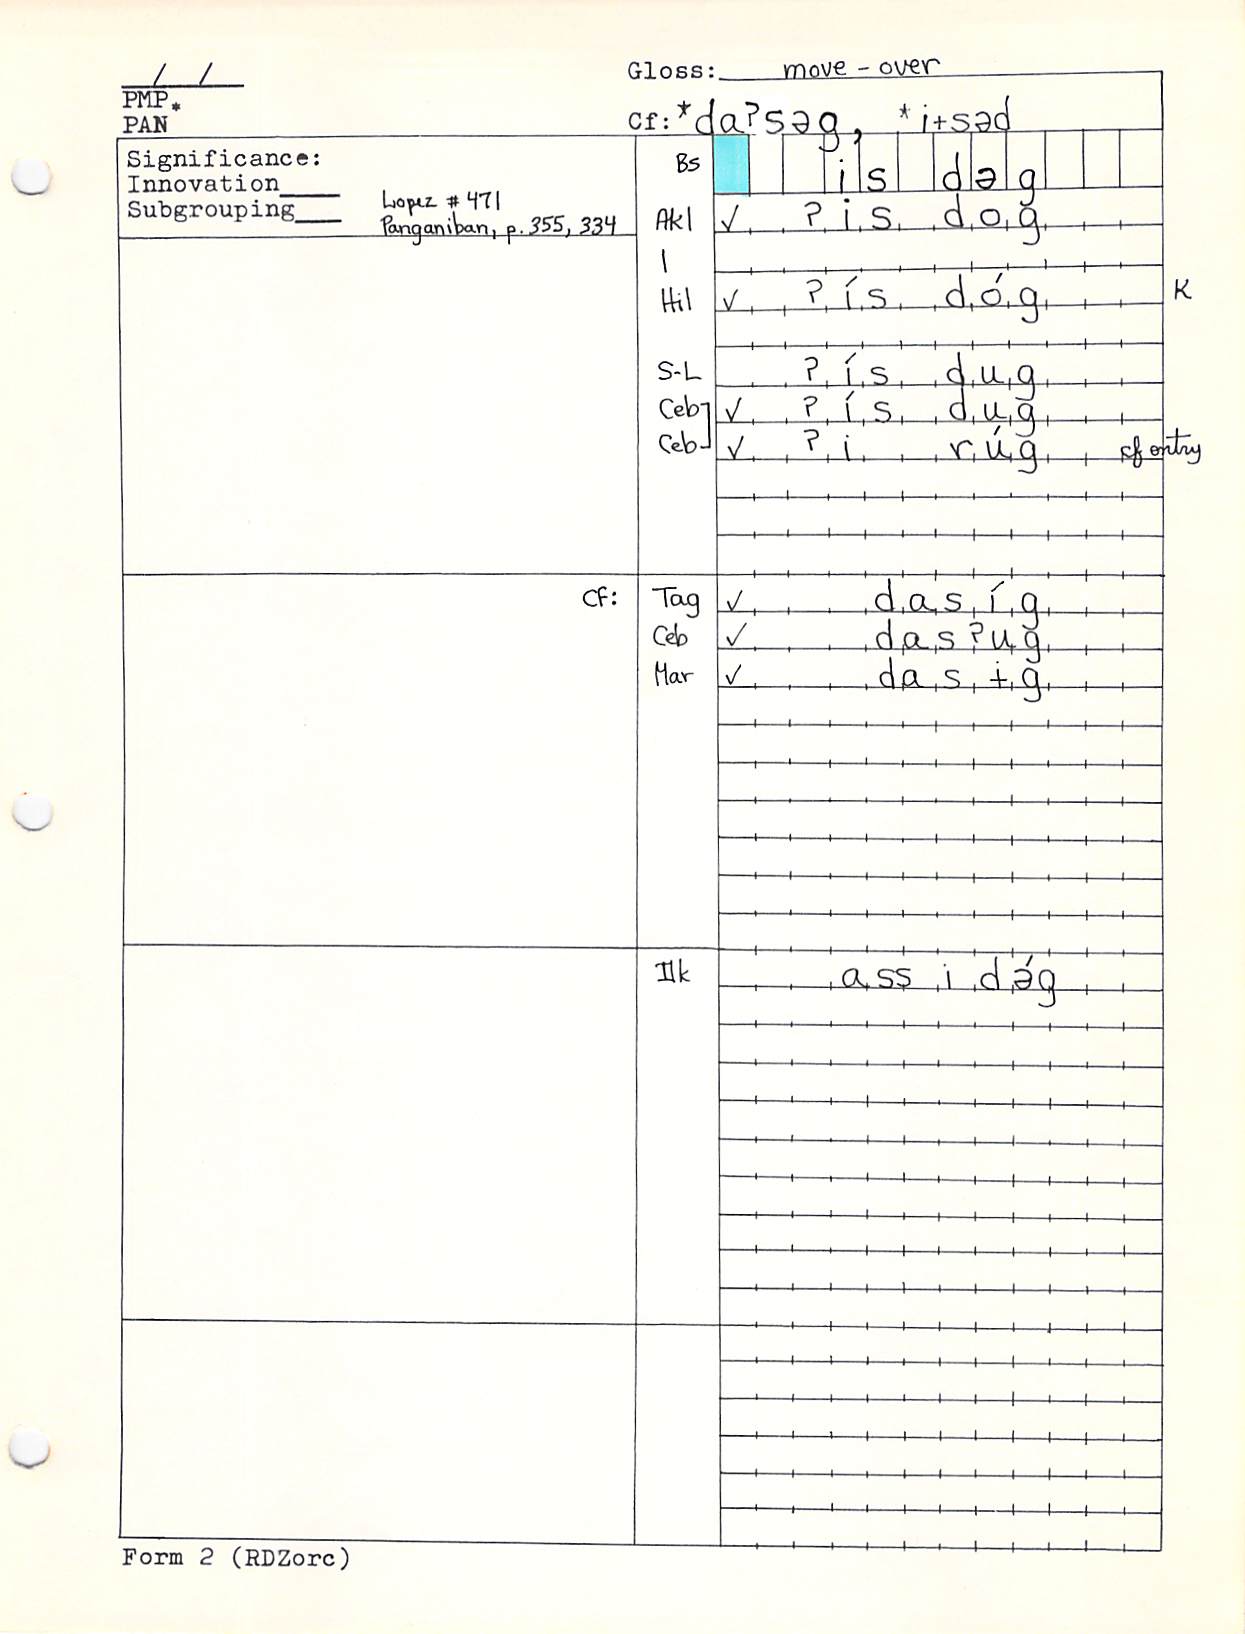 / /
Gloss: move - over
PMP*
PAN
Cf: *daʔsəg, *i+səd
Significance:
Innovation____
Subgrouping____
Lopez # 471
Panganiban, p. 355, 334
Bs isdəg
Akl ✓ ʔisdog
|
Hil ✓ ʔísdóg K
S-L ʔísdug
Ceb ✓ ʔísdug
Ceb ✓ ʔirúg cf entry
Cf: Tag ✓ dasíg
Ceb ✓ dasʔug
Mar ✓ dasɨg
Ilk assidə́g
Form 2 (RDZorc)